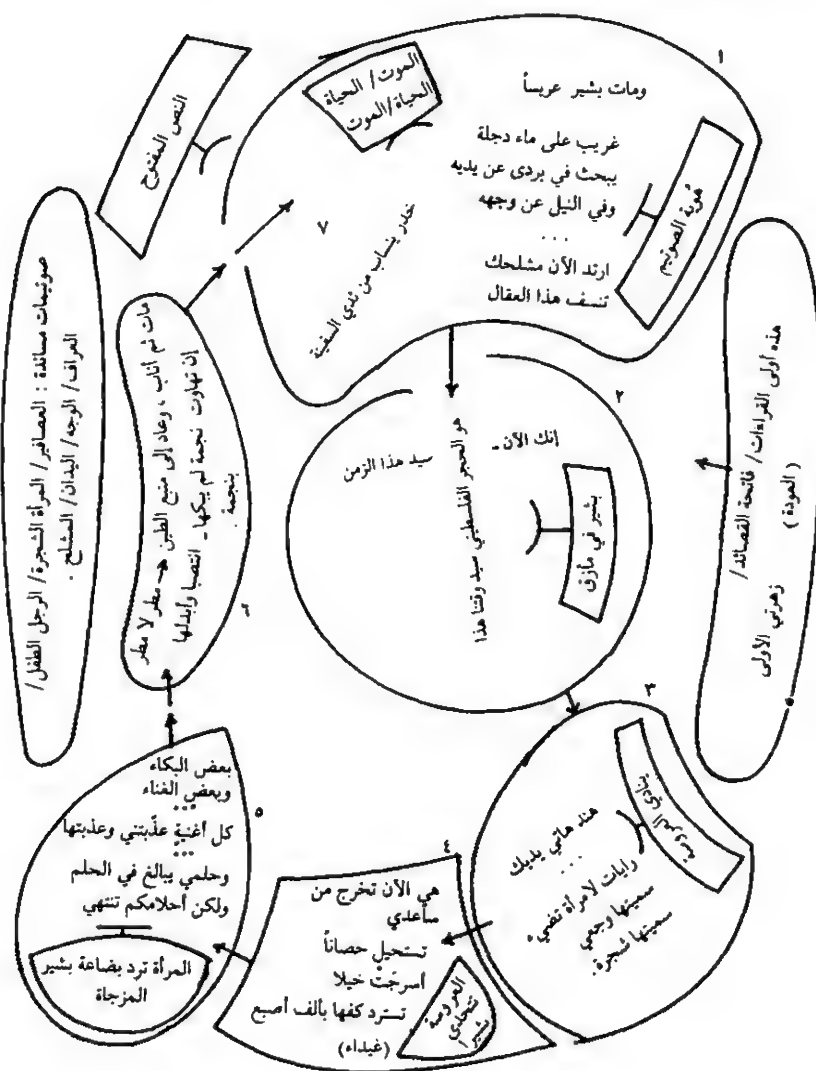 ١
ومات بشير عريساً
غريب على ماء دجلة
يبحث في بردى عن يديه
وفي النيل عن وجهه
...
ارتد الآن مشلحك
تنسف هذا العقال
هُوية الصوتيم
الموت/ الحياة
الحياة/الموت
النص المفتوح
٧
خدر ينساب من ثدي السفينة
هذه أولى القراءات/ فاتحة القصائد/
زهرتي الأولى
(المودة)
٢
إنك الآن -
سيد هذا الزمن
هو الحجر الفلسطيني سيد وقتنا هذا
بشير في مأزق
٣
ينادي العروسة
هند هاتي يديك
...
رايات لامرأة تضيء
سميتها وجعي
سميتها شجرة.
٤
هي الآن تخرج من
ساعدي
تستحيل حصاناً
أسرجتْ خيلا
تسترد كفها بألف أصبع
(غيداء)
العروسة
تتحدى
بشيرا
٥
بعض البكاء
وبعض الغناء
...
كل أغنية عذّبتني وعذبتها
...
وحلمي يبالغ في الحلم
ولكن أحلامكم تنتهي
المرأة ترد بضاعة بشير
المزجاة
مات ثم أناب ، وعاد إلى منبع الطين ← مطر لا مطر
إن تهاوت نجمة لم يبكها - انتصبا وأبدلها
بنجمة .
صوتيمات مساندة : العصافير/ المرأة الشجرة/ الرجل الطفل/
العراف/ الوجه/ اليدان/ المشلح .